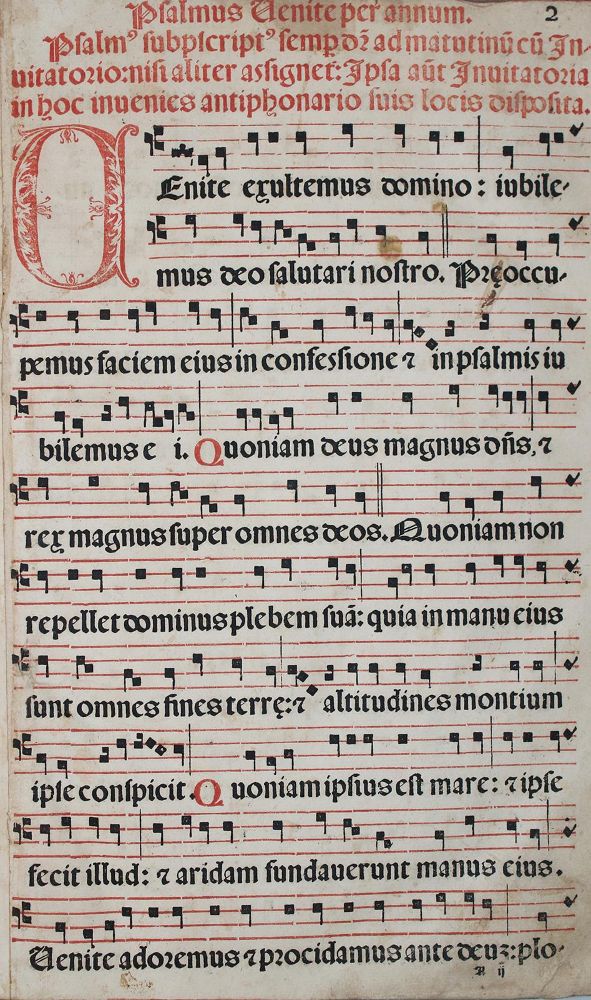 Psalmus Uenite per annum. 2
Psalm⁹ subpscript⁹ semp dr̄ ad matutinū cū In-
uitatorio: nisi aliter assignet̄: Ipsa aūt Inuitatoria
in hoc inuenies antiphonario suis locis disposita.
UEnite exultemus domino: iubile-
mus deo salutari nostro. Pręoccu-
pemus faciem eius in confessione ⁊ in psalmis iu
bilemus e i. Quoniam deus magnus dn̄s, ⁊
rex magnus super omnes deos. Quoniam non
repellet dominus plebem suā: quia in manu eius
sunt omnes fines terrę: ⁊ altitudines montium
ipse conspicit. Quoniam ipsius est mare: ⁊ ipse
fecit illud: ⁊ aridam fundauerunt manus eius.
Uenite adoremus ⁊ procidamus ante deuz: plo-
A ij